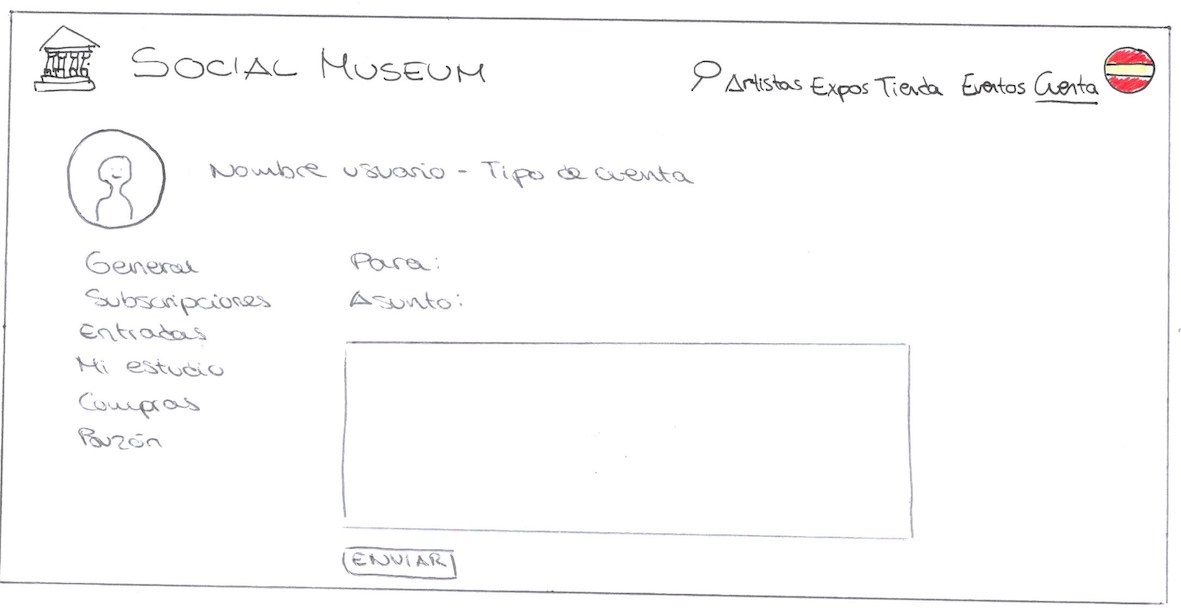 SOCIAL MUSEUM
Artistas Expos Tienda Eventos Cuenta
Nombre usuario - Tipo de cuenta
General
Subscripciones
Entradas
Mi estudio
Compras
Buzón
Para:
Asunto:
ENVIAR